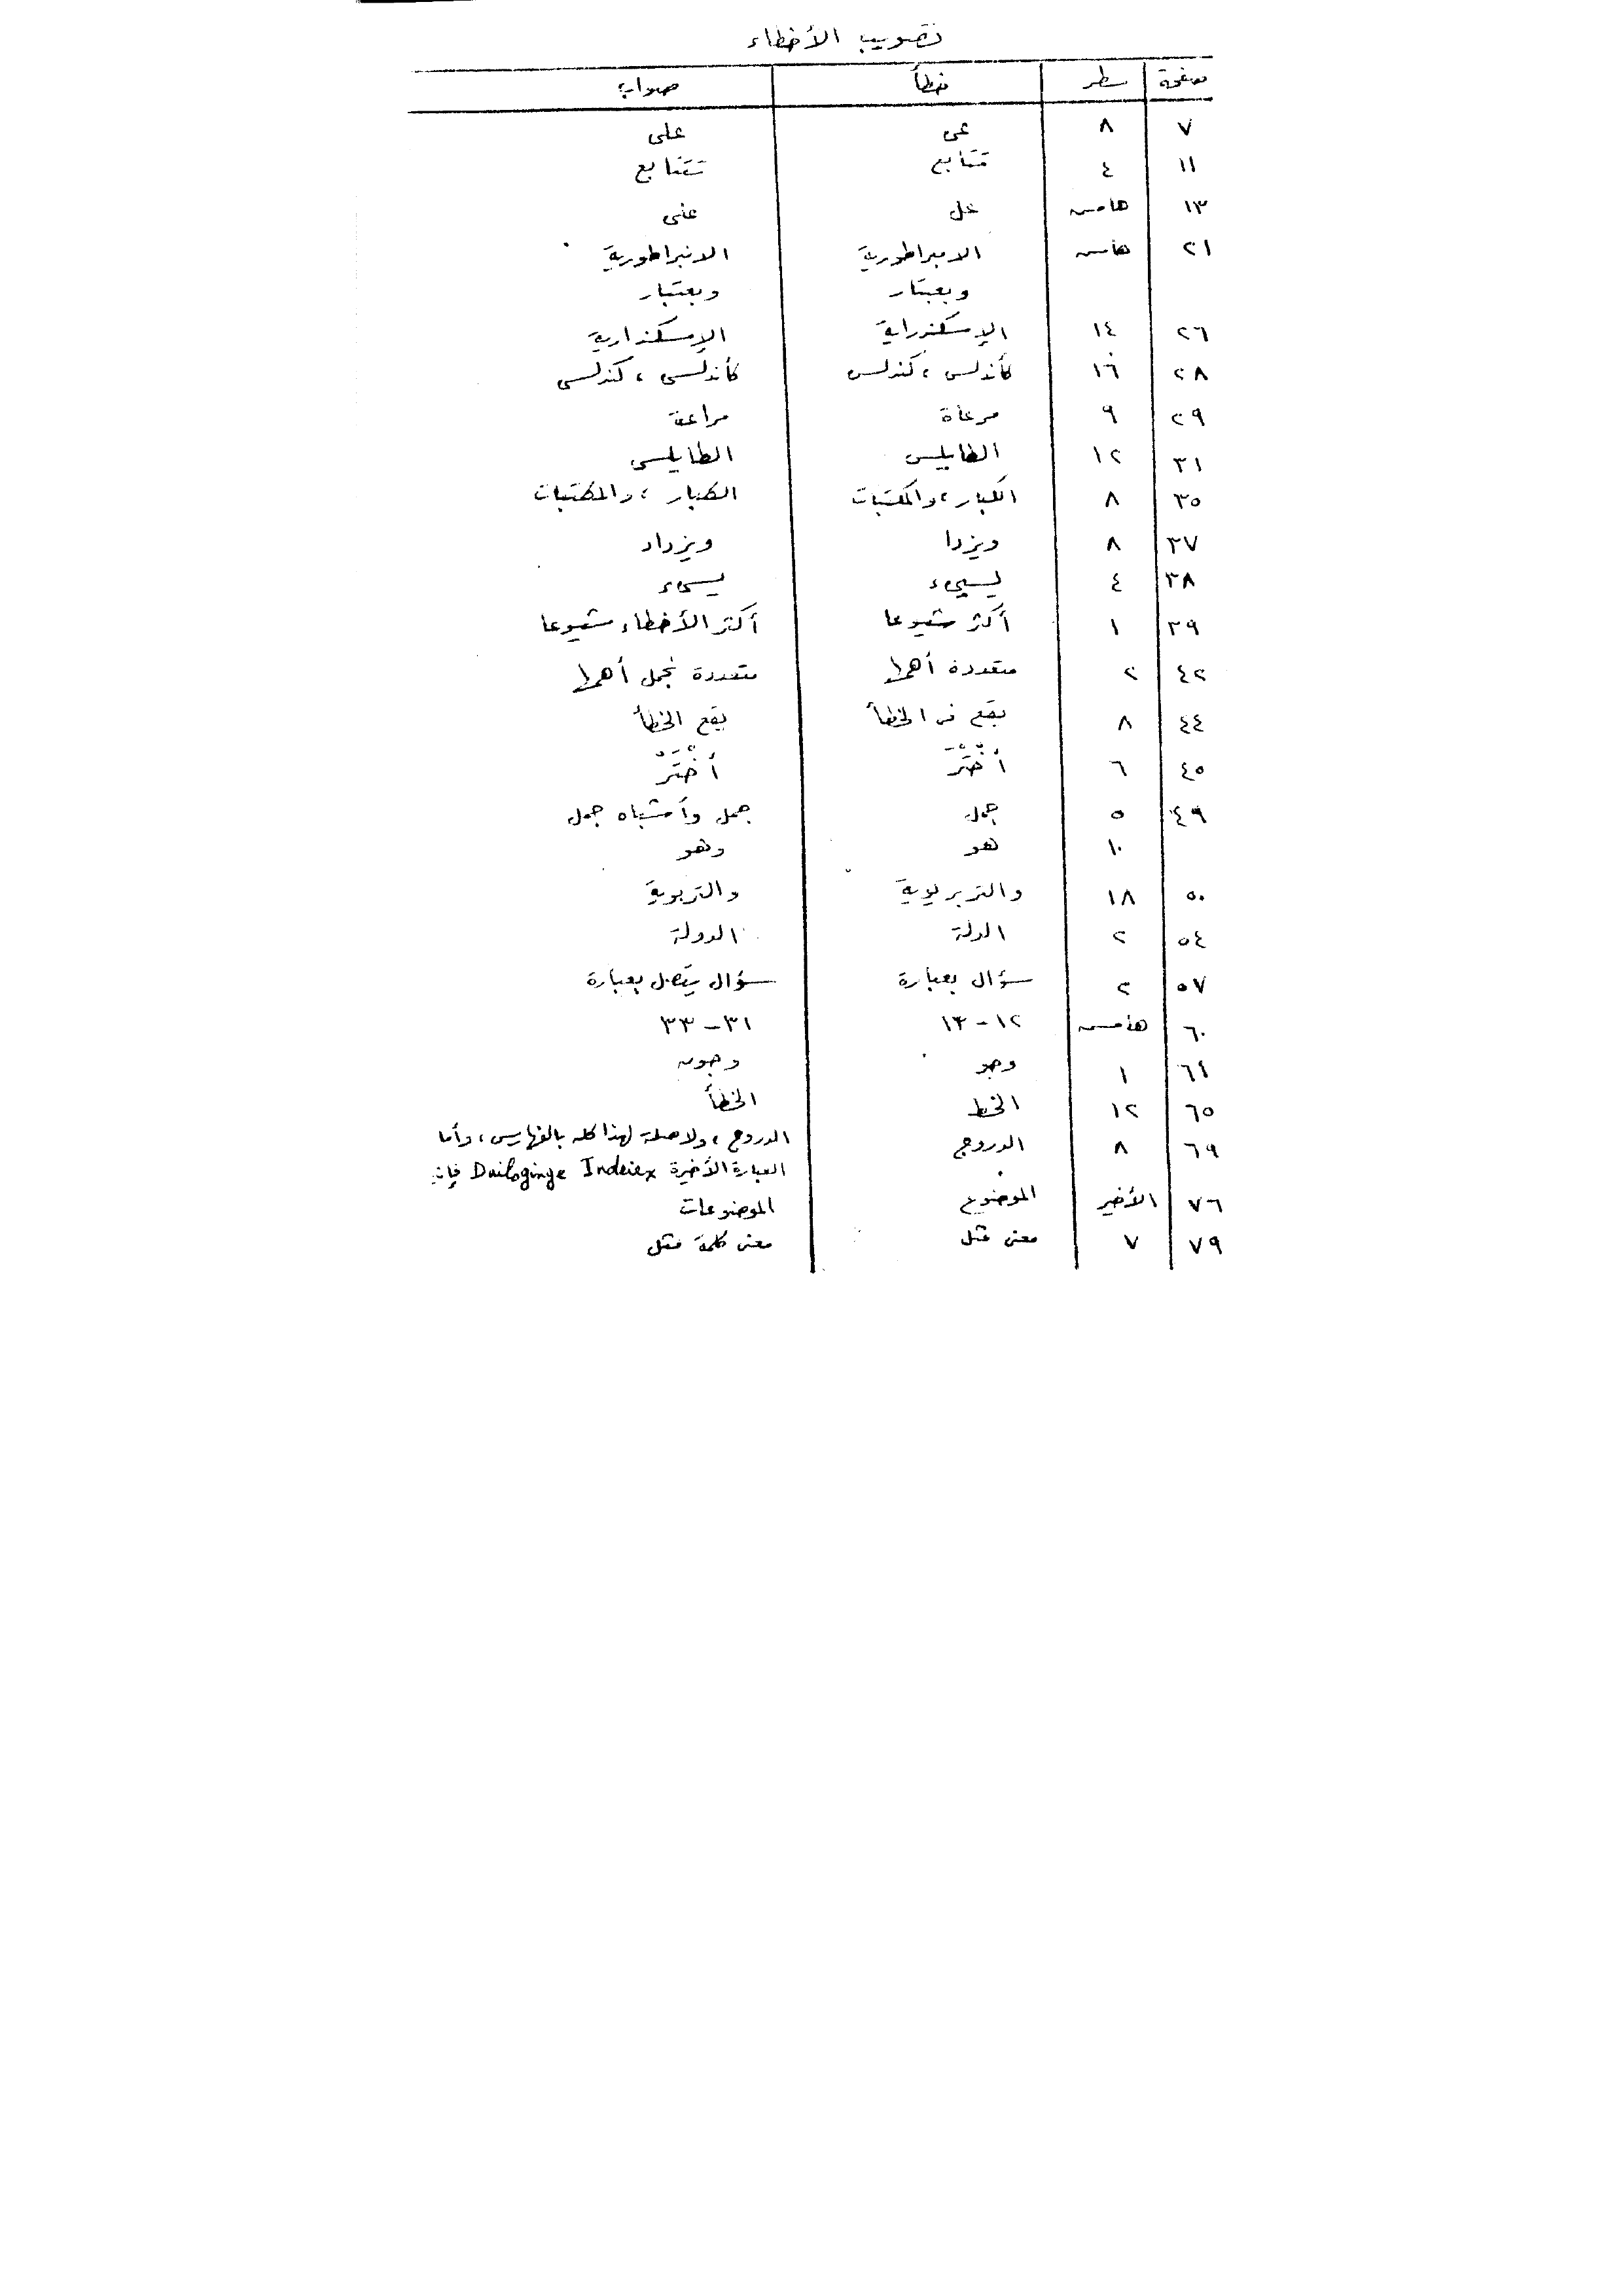 تصويب الأخطاء
صفحة سطر خطأ صواب
٧ ٨ عى على
١١ ٤ تتابع تتتابع
١٣ هامش عل على
٢١ هامش الامبراطورية الانبراطورية
وبعبتار وبعتبار
٢٦ ١٤ الإسكندراية الإسكندارية
٢٨ ١٦ كأندلس ، كندلس كأندلسى ، كندلسى
٢٩ ٩ مرعاة مراعة
٣١ ١٢ الطايلس الطايلسى
٣٥ ٨ الكبار ، والمكتبات الكبار ، والمكتبات
٣٧ ٨ ويزدا ويزداد
٣٨ ٤ يسيىء يسىء
٣٩ ١ أكثر شيوعا أكثر الأخطاء شيوعا
٤٢ ٢ متعددة أهمها متعددة نجمل أهمها
٤٤ ٨ يقع فى الخطأ يقع الخطأ
٤٥ ٦ أختر أختر
٤٩ ٥ جمل جمل وأشباه جمل
١٠ هو وهو
٥٠ ١٨ والتربريوية والتربوية
٥٤ ٢ الدلة الدولة
٥٧ ٢ سؤال بعبارة سؤال يتصل بعبارة
٦٠ هامش ١٢ - ١٣ ٣١ - ٣٣
٦٤ ١ وجو وجوه
٦٥ ١٢ الخط الخطأ
٦٩ ٨ الدروج الدروج ، ولا صلة لهذا كله بالفهارس ، وأما
العبارة الأخيرة Dailoginge Indeiex فإن
٧٦ الأخير الموضوع الموضوعات
٧٩ ٧ معنى مثل معنى كلمة مثل